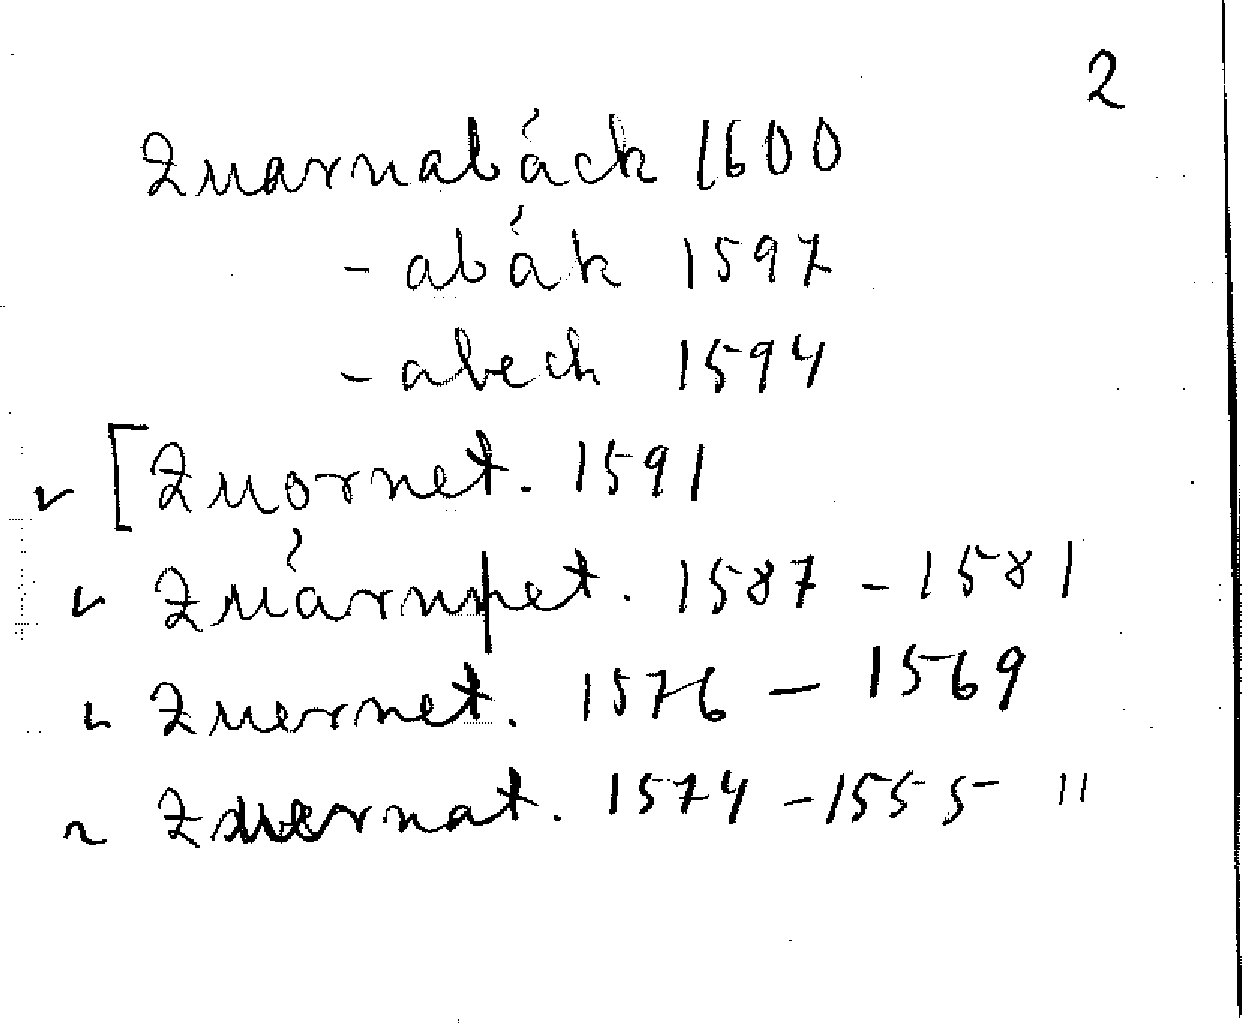 2
Zuarnabáck 1600
- abák 1597
- abech 1594
✓ [Zuornet. 1591
✓ Zuárnpet. 1587 - 1581
✓ Zuernet. 1576 - 1569
Zuernat. 1574 - 1555 "